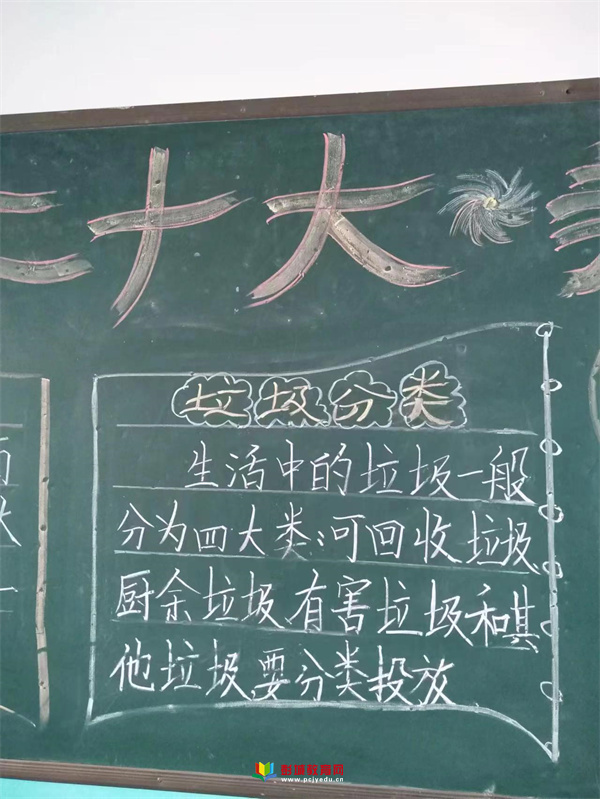 二十大
垃圾分类
生活中的垃圾一般
分为四大类:可回收垃圾
厨余垃圾,有害垃圾和其
他垃圾,要分类投放
彭城教育网
www.pcjyedu.cn